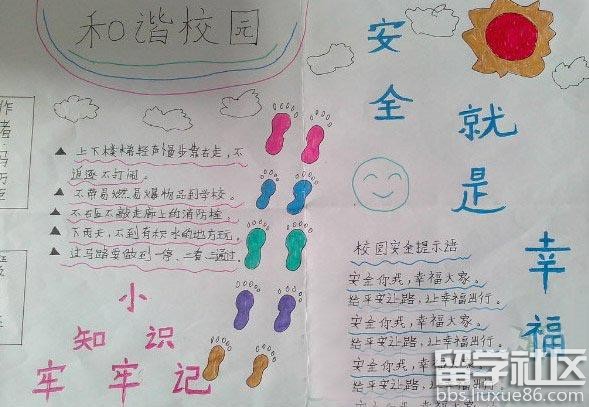 和谐校园
▲ 上下楼梯轻声慢步靠右走，不
追逐不打闹。
▲ 不带易燃易爆物品到学校。
▲ 不乱不敲走廊上的消防栓。
▲ 下雨天，不到有积水的地方玩。
▲ 过马路要做到一停、二看、三通过
小
知识
牢牢记
安全
就是
幸福
校园安全提示语
安全你我，幸福大家。
给平安让路，让幸福出行。
安全你我，幸福大家。
给平安让路，让幸福出行。
安全你我，幸福大家。
给平安让路，让幸福出行。
作
者
冯
万
留学社区
bbs.liuxue86.com